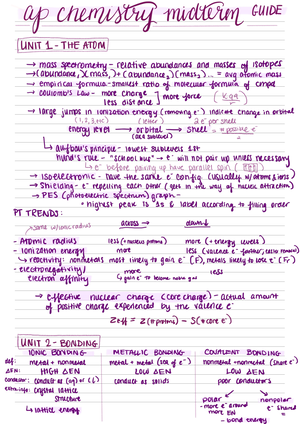 ap chemistry midterm GUIDE
UNIT 1 - THE ATOM
→ mass spectrometry - relative abundances and masses of isotopes
→ (abundance₁)(mass₁) + (abundance₂)(mass₂) ... = avg atomic mass
→ empirical formula - smallest ratio of molecular formula of cmpd
→ coulomb's law - more charge
less distance
} more force
→ large jumps in ionization energy (removing e⁻) indicate change in orbital
energy level → orbital → shell
aufbau's principle - lowest sublevels 1st
hund's rule - "school bus" → e⁻ will not pair up unless necessary
→ isoelectronic - have the same e⁻ config (usually w/ atoms & ions)
→ shielding - e⁻ repelling each other (get in the way of nucleic attraction)
→ PES (photoelectric spectrum) graph -
• highest peak is 1s & label according to filling order
PT TRENDS:
across →
down ↓
→ atomic radius
less (+ nucleus protons)
more (+ energy levels)
- ionization energy
more
less (valence e⁻ farther, easier to remove)
↳ reactivity: nonmetals most likely to gain e⁻ (F), metals likely to lose e⁻ (Fr)
→ electronegativity/
electron affinity
more
less
→ effective nuclear charge (core charge) - actual amount
of positive charge experienced by the valence e⁻
Zeff = Z (# protons) - S (# core e⁻)
UNIT 2 - BONDING
IONIC BONDING
METALLIC BONDING
COVALENT BONDING
def:
metal + nonmetal
metal + metal (sea of e⁻)
nonmetal + nonmetal (share e⁻)
ΔEN:
HIGH ΔEN
LOW ΔEN
LOW ΔEN
conductor:
conduct as (aq) or (l)
conduct as solids
poor conductors
crystal lattice
structure
↳ lattice energy
polar
- more e⁻ around
more EN
- bond energy
nonpolar
e⁻ shared